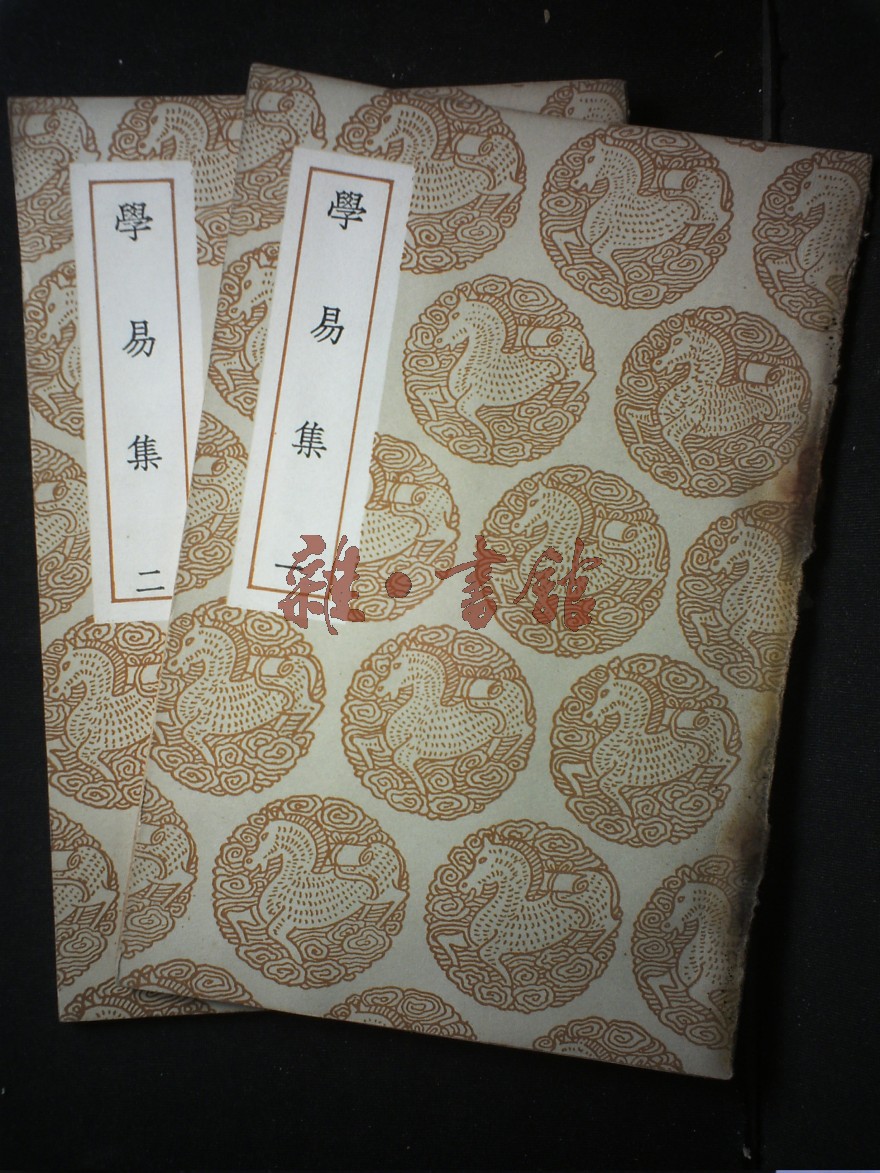 學易集
二
學易集
一
雜·書館